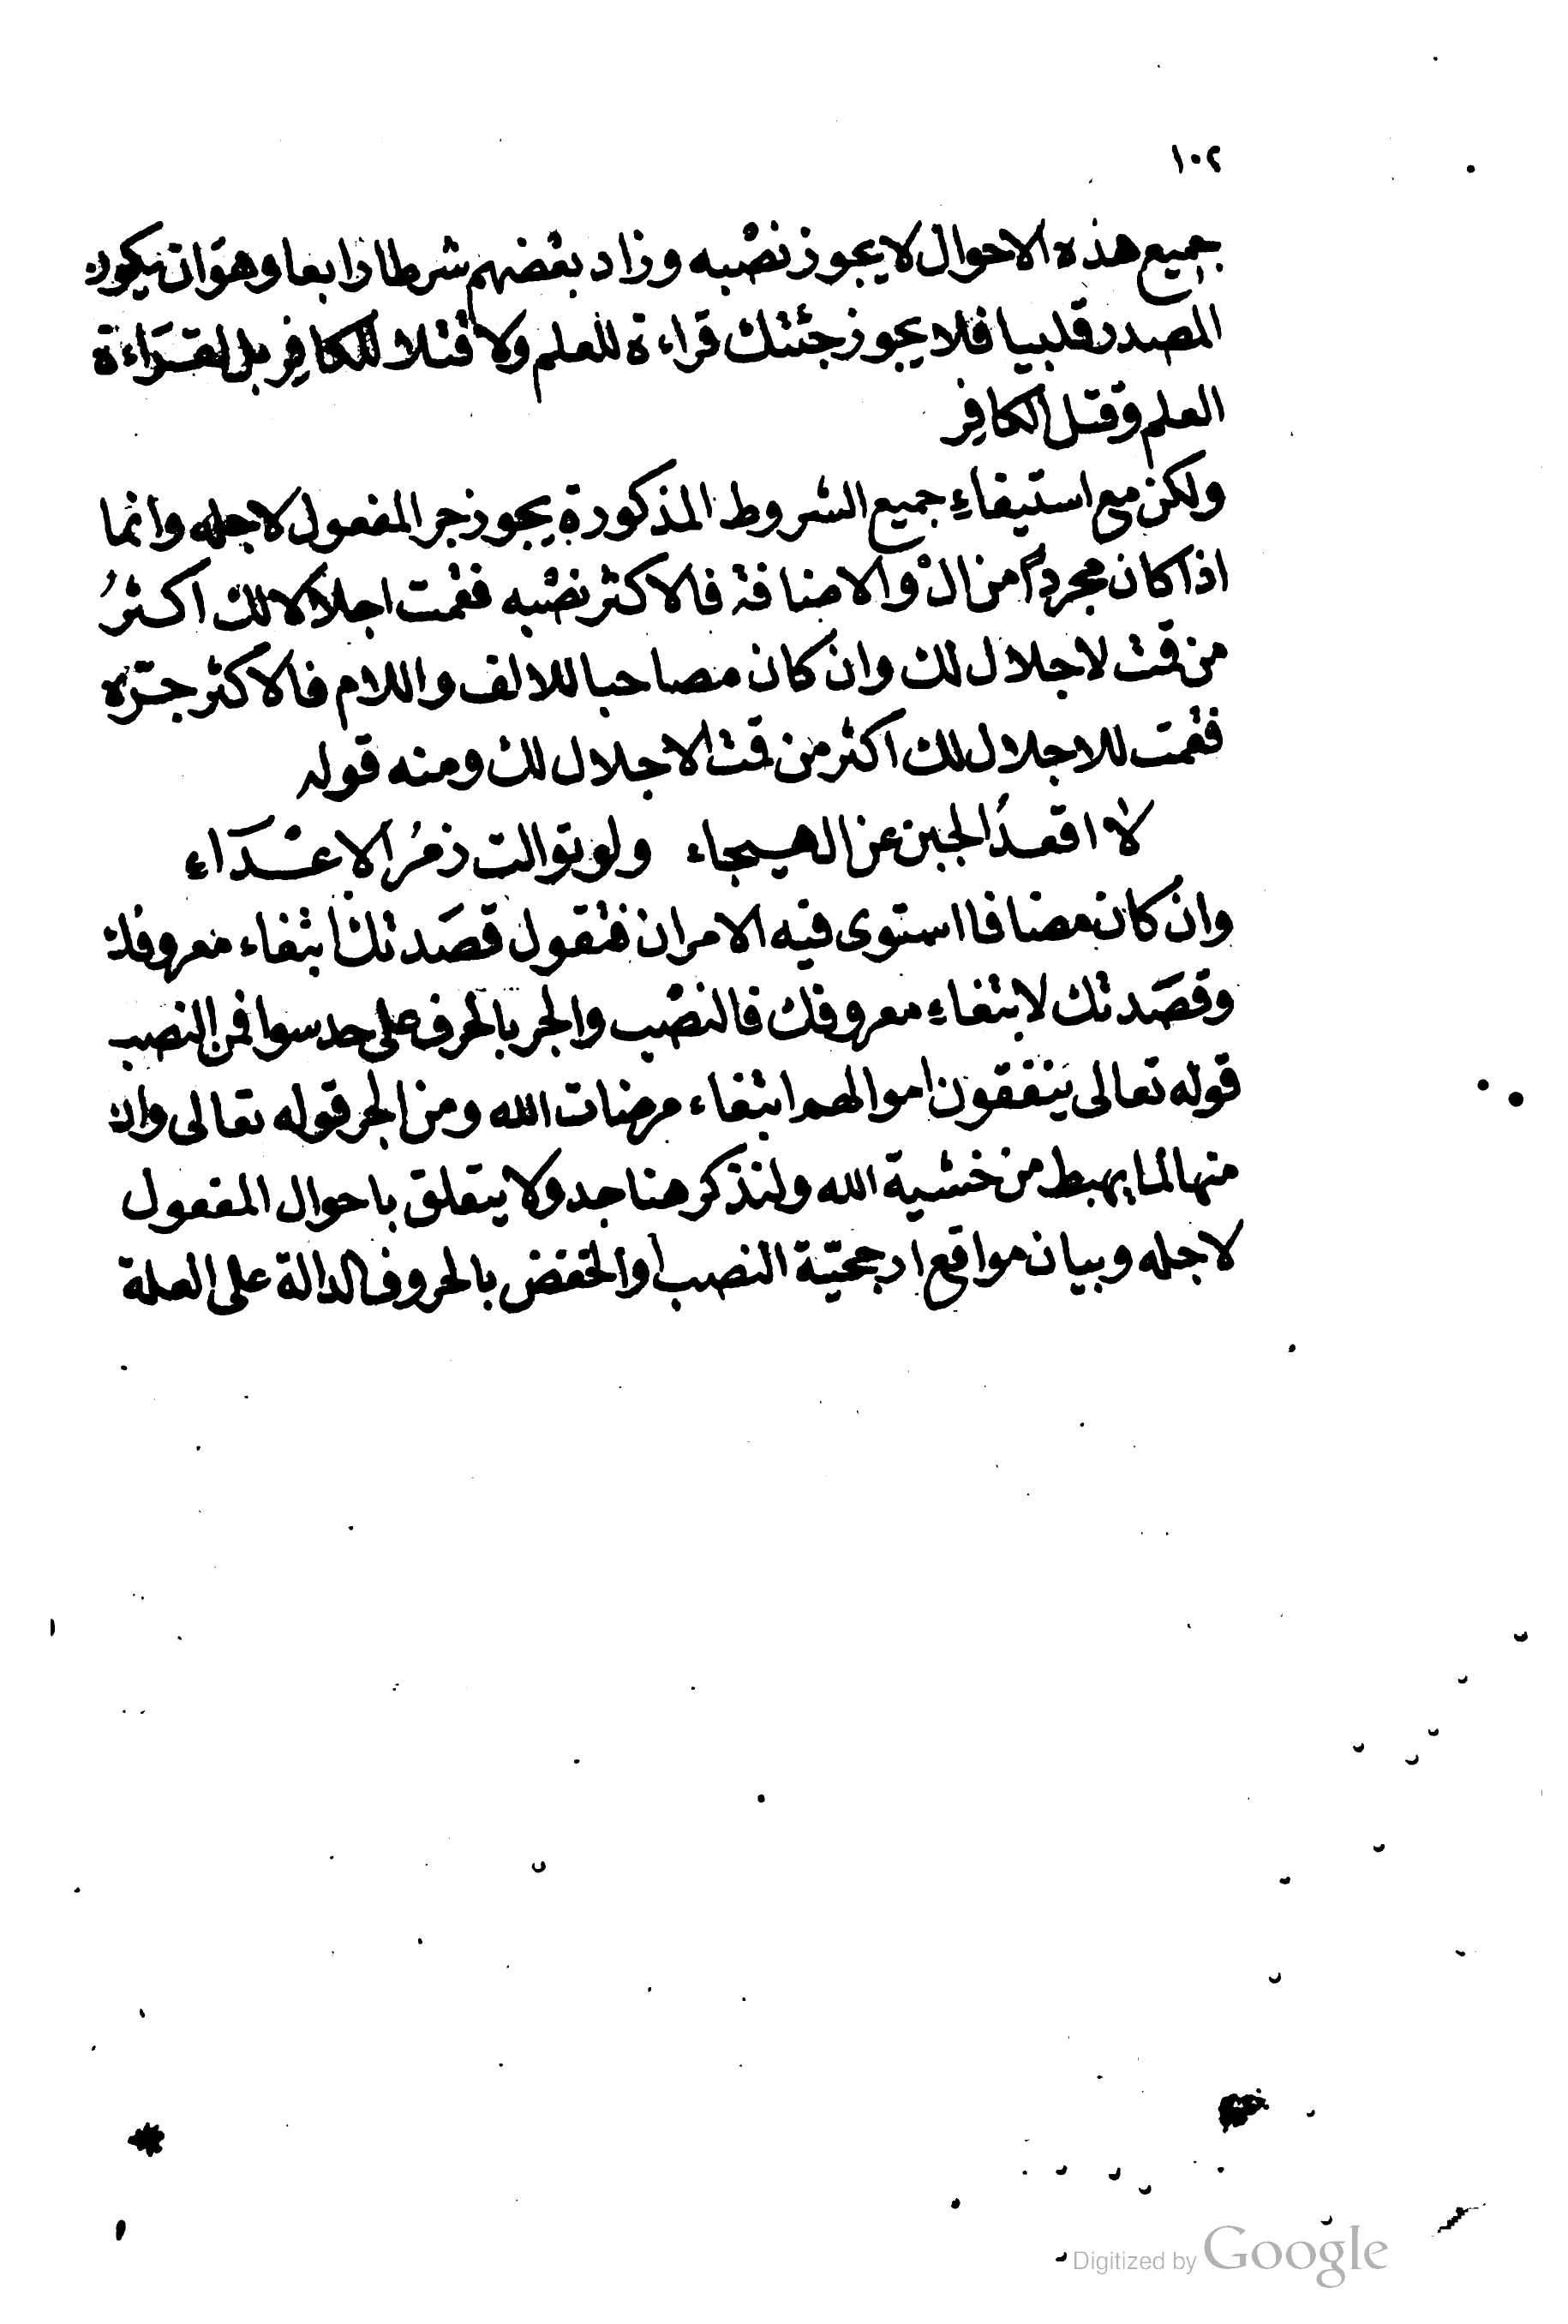 ١٠٢
جميع هذه الاحوال لا يجوز نصْبه وزاد بعْضهم شرطا رابعا وهوَ ان يكون
المصدر قلبيا فلا يجوز جئتك قراءة للعلم ولا قتلا للكافِر بل لقرَاءة
العلم وقتل الكافِر
ولكن مع استيفاءِ جميع الشروط المذكورة يجوز جر المفعول لاجله وانما
اذا كان مجرداً من الْ والاضافة فالاكثر نصْبه فقمت اجلالا لك اكثرُ
من قمت لاجلال لك وان كان مصاحبا للالف واللام فالاكثر جرّه
فقمت للاجلال لك اكثر من قمت الاجلال لك ومنه قوله
لا اقعدُ الجبن عن الهيجاء ولو توالت زمرُ الاعْدَاء
وان كان مضافا استوى فيه الامران فتقول قصَدتك ابتغاء معروفك
وقصَدتك لابتغاءِ معروفك فالنصْب والجر بالحرف على حد سوا فمن النصب
قوله تعالى ينفقون اموالهم ابتغاء مرضات الله ومن الجر قوله تعالى وان
منها لما يهبط من خشية الله ولنذكر هنا جدولا يتعلق باحوال المفعول
لاجله وبيان مواقع ارجحيّة النصب او الخفض بالحروف الدالة على العلة
Digitized by Google